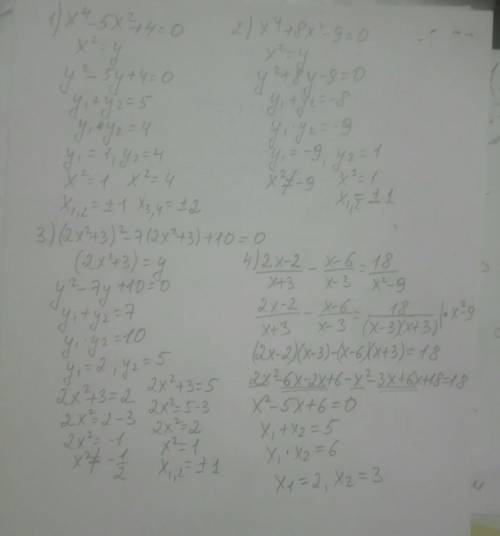 1) x⁴-5x²+4=0
x²=y
y²-5y+4=0
y₁+y₂=5
y₁•y₂=4
y₁=1, y₂=4
x²=1 x²=4
x₁,₂=±1 x₃,₄=±2
2) x⁴+8x²-9=0
x²=y
y²+8y-9=0
y₁+y₂=-8
y₁·y₂=-9
y₁=-9, y₂=1
x²≠-9 x²=1
x₁,₂=±1
3) (2x²+3)²-7(2x²+3)+10=0
(2x²+3)=y
y²-7y+10=0
y₁+y₂=7
y₁·y₂=10
y₁=2, y₂=5
2x²+3=2 2x²+3=5
2x²=2-3 2x²=5-3
2x²=-1 2x²=2
x²≠-1/2 x²=1
x₁,₂=±1
4) (2x-2)/(x+3) - (x-6)/(x-3) = 18/(x²-9)
(2x-2)/(x+3) - (x-6)/(x-3) = 18/((x-3)(x+3)) |•x²-9
(2x-2)(x-3)-(x-6)(x+3)=18
2x²-6x-2x+6-x²-3x+6x+18=18
x²-5x+6=0
x₁+x₂=5
x₁·x₂=6
x₁=2, x₂=3